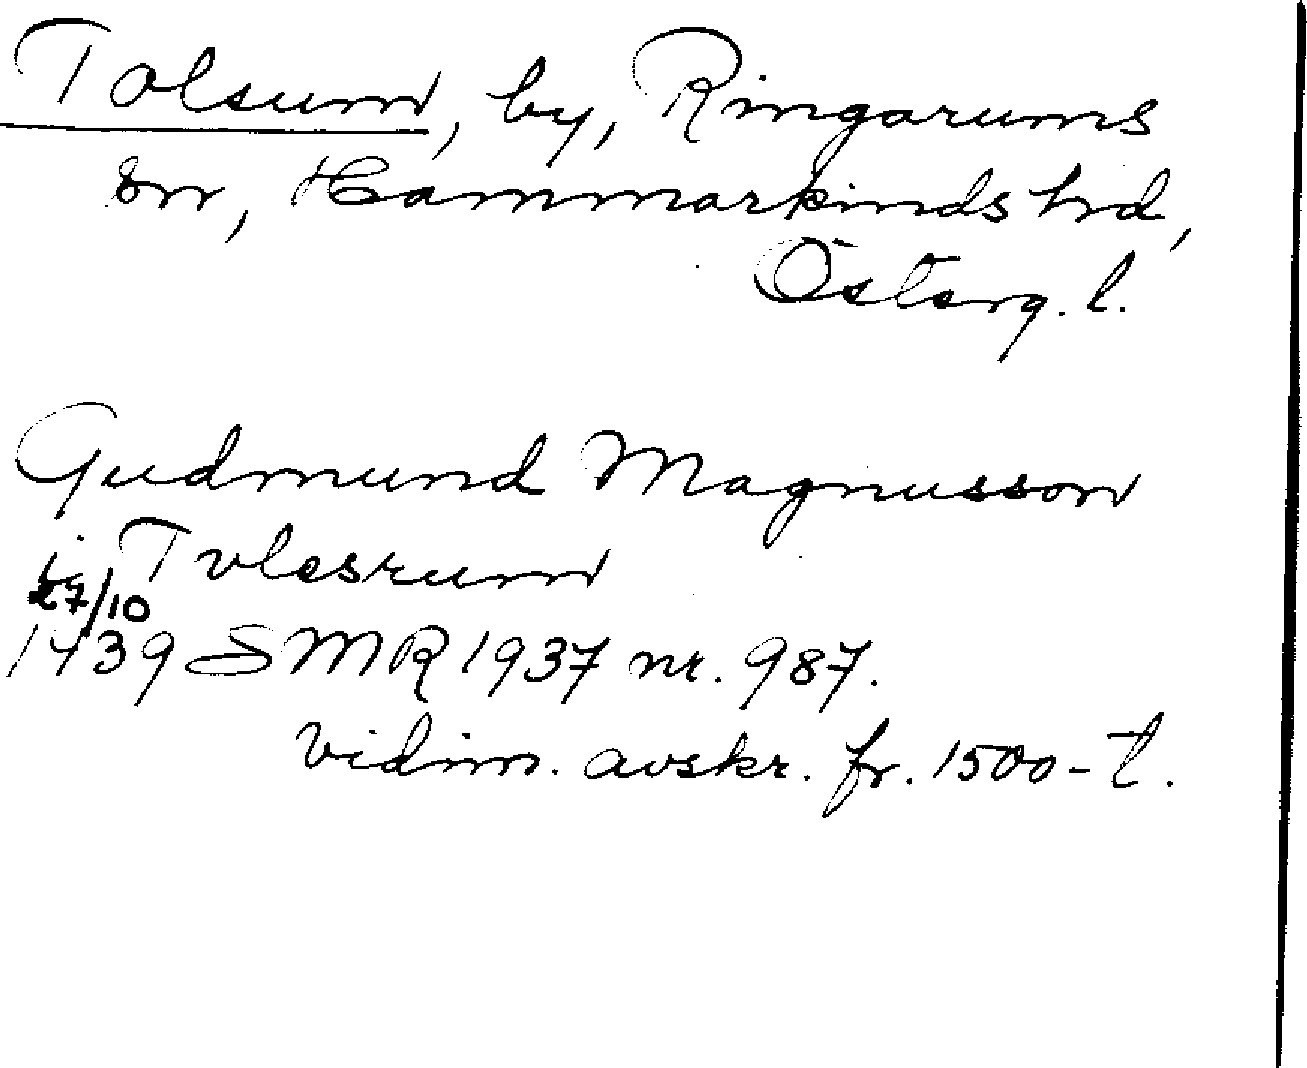 Tolsum, by, Ringarums
sn, Hammarkinds hd,
Österg. l.
Gudmund Magnusson
i Tolesrum
27/10
1439 SMR 1937 nr. 987.
vidim. avskr. fr. 1500-t.